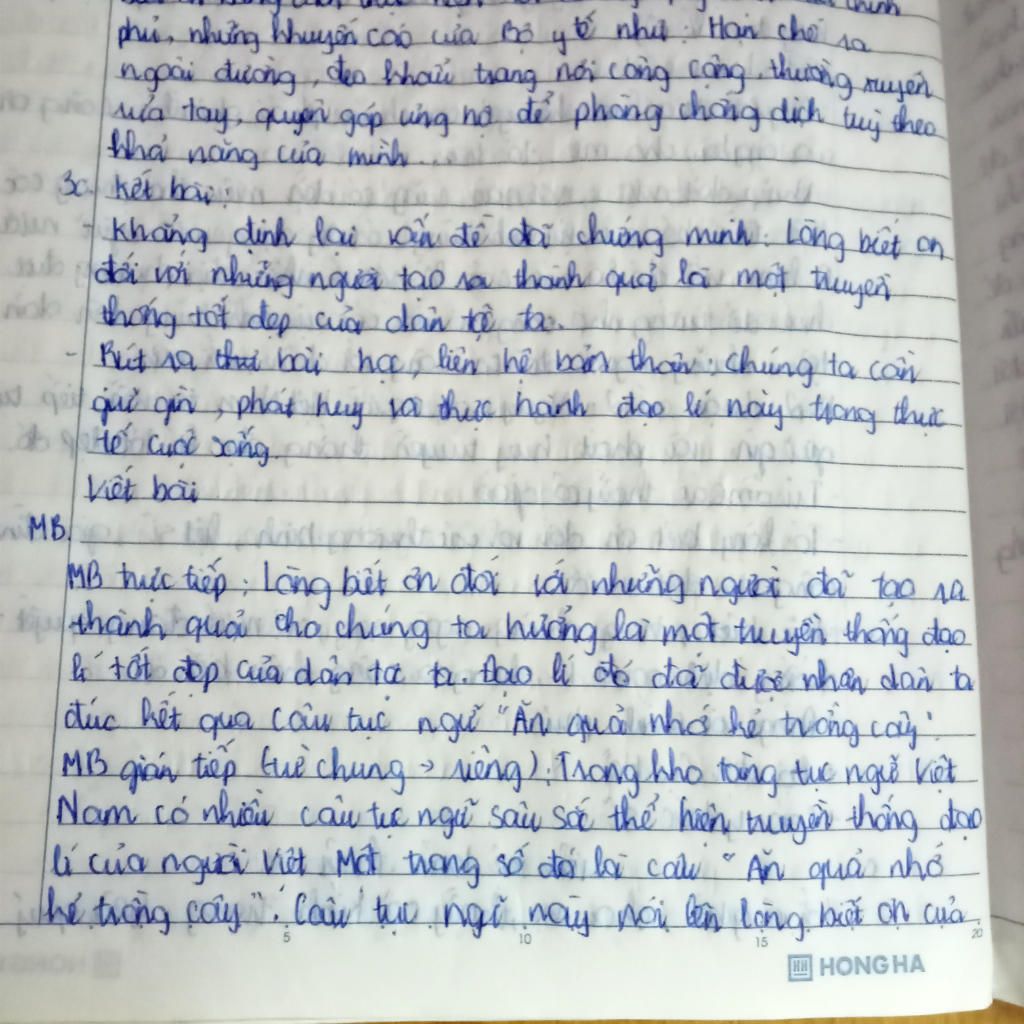 phủ, những khuyến cáo của Bộ y tế như: Hạn chế ra
ngoài đường, đeo khẩu trang nơi công cộng, thường xuyên
rửa tay, quyên góp ủng hộ để phòng chống dịch tuỳ theo
khả năng của mình.
3c. Kết bài:
- Khẳng định lại vấn đề đã chứng minh: Lòng biết ơn
đối với những người tạo ra thành quả là một truyền
thống tốt đẹp của dân tộc ta.
- Rút ra bài học, liên hệ bản thân: chúng ta cần
giữ gìn, phát huy và thực hành đạo lí này trong thực
tế cuộc sống.
Viết bài
MB.
MB trực tiếp: Lòng biết ơn đối với những người đã tạo ra
thành quả cho chúng ta hưởng là một truyền thống đạo
lí tốt đẹp của dân tộc ta. Đạo lí đó đã được nhân dân ta
đúc kết qua câu tục ngữ "Ăn quả nhớ kẻ trồng cây".
MB gián tiếp (từ chung → riêng). Trong kho tàng tục ngữ Việt
Nam có nhiều câu tục ngữ sâu sắc thể hiện truyền thống đạo
lí của người Việt Một trong số đó là câu "Ăn quả nhớ
kẻ trồng cây". Câu tục ngữ này nói lên lòng biết ơn của
5 10 15 20
HONG HA